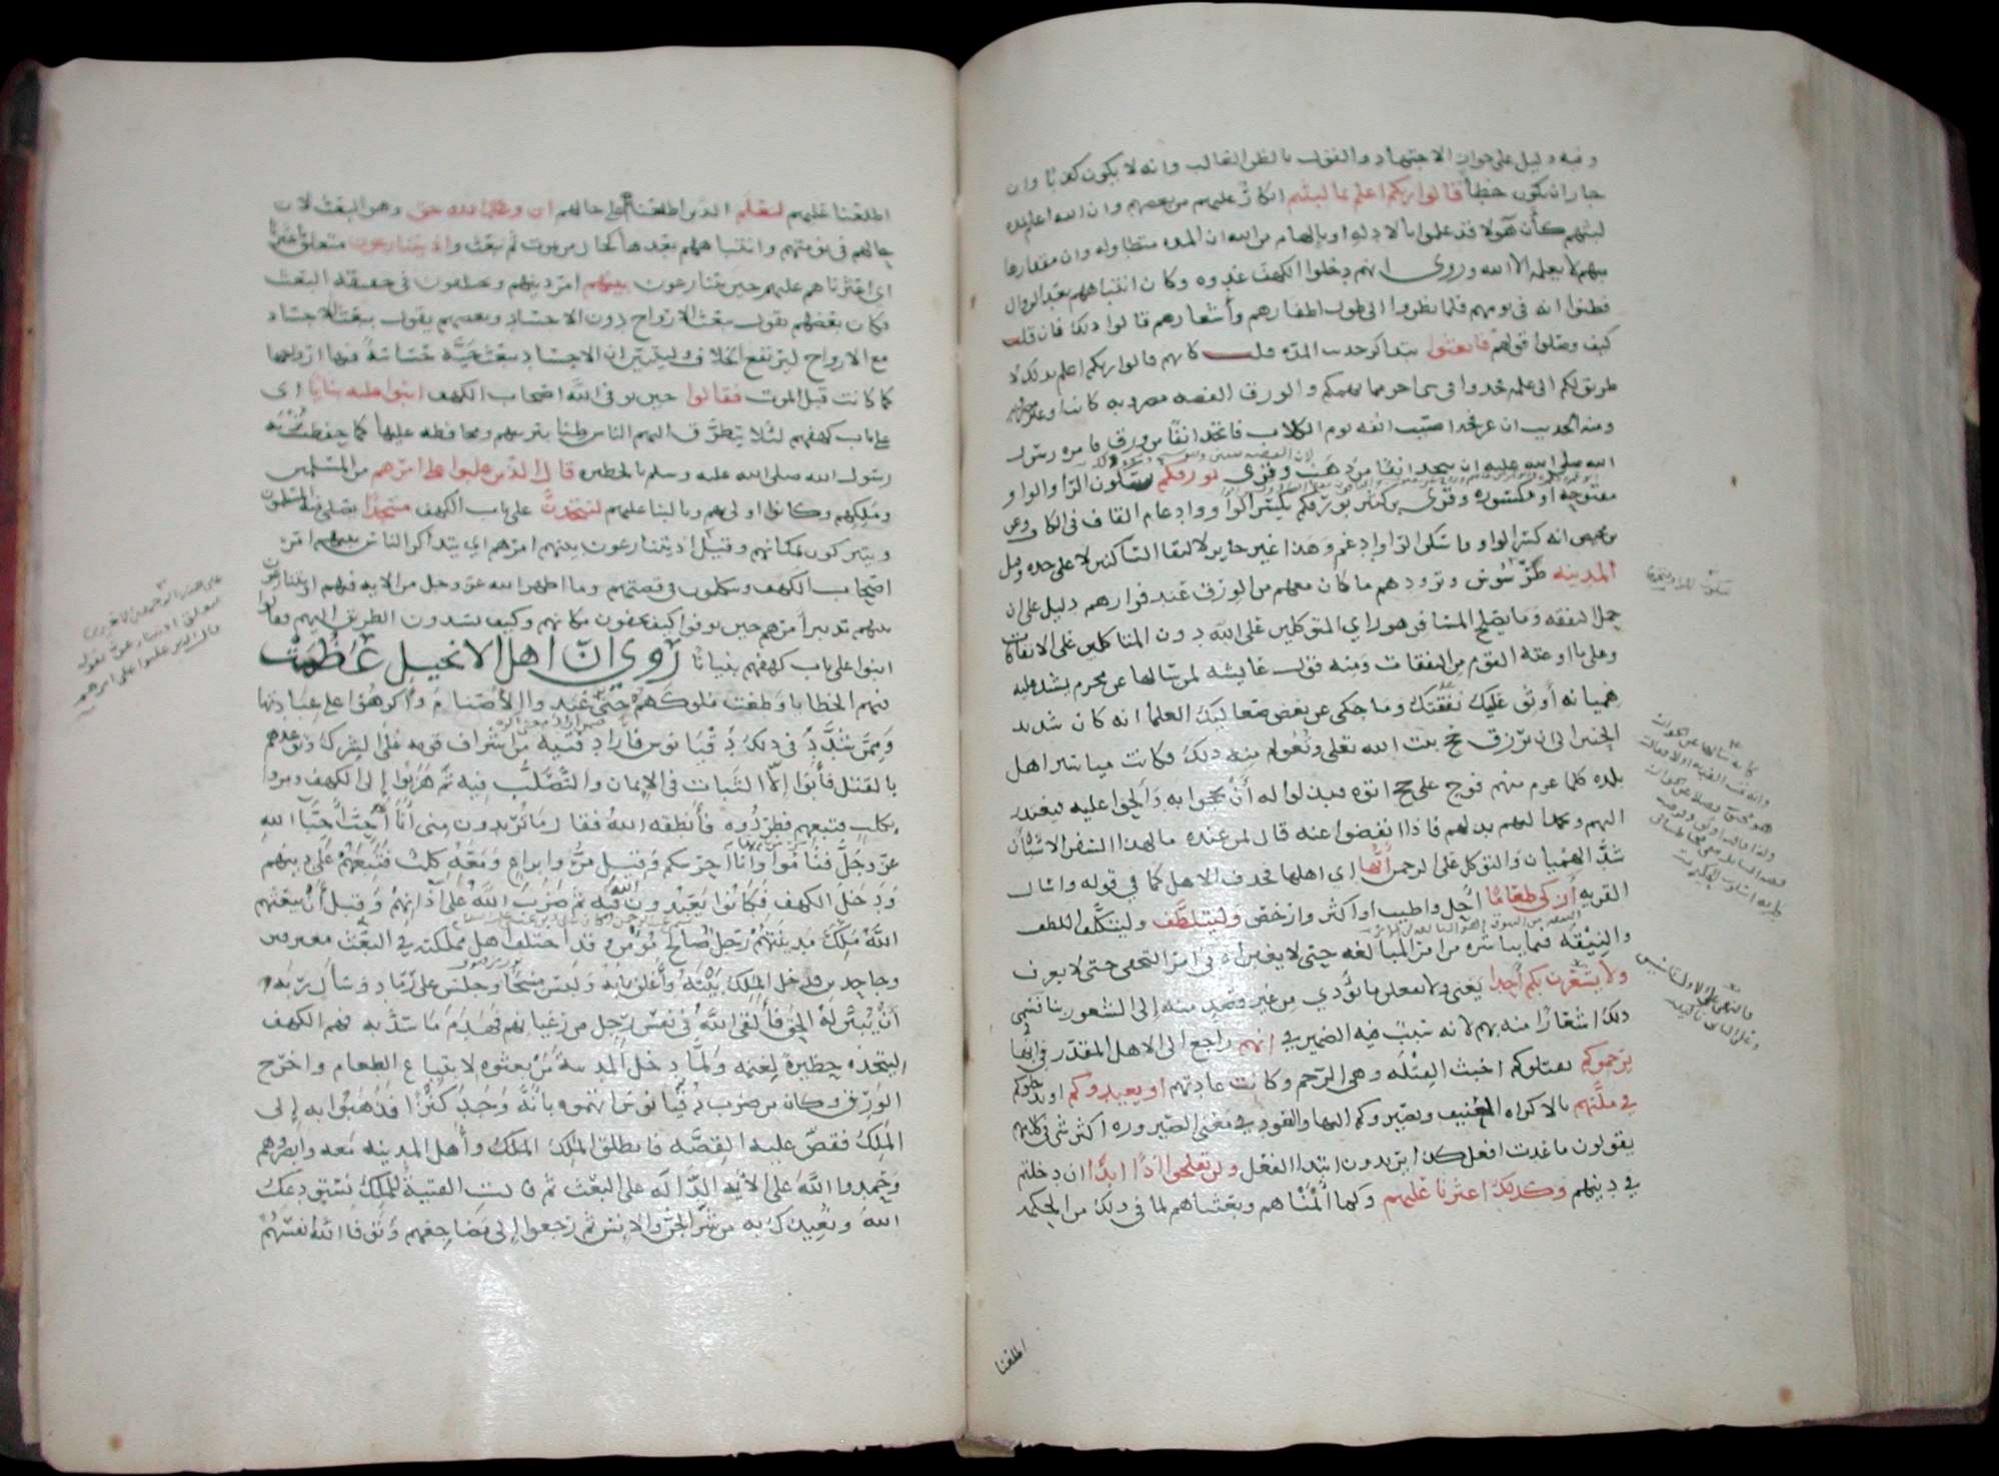 وفيه دليل على جواز الاجتهاد والقول بالظن الغالب وانه لا يكون كذبا وان
جاز ان يكون خطأ قالوا ربكم اعلم بما لبثتم انكار عليهم من بعضهم وان الله اعلم بمدة
لبثهم كأن هؤلا قد علموا بالادلة او بالهام من الله ان المدة متطاولة وان مقدارها
مبهم لا يعلمه الا الله وروى انهم دخلوا الكهف غدوه وكان انتباههم بعد الزوال
فظنوا انه في يومهم فلما نظروا الى طول اظفارهم وأشعارهم قالوا ذلك فان قلت
كيف وصلوا قولهم فابعثوا بتذاكر حديث المدة قلت كانهم قالوا ربكم اعلم بذلك لا
طريق لكم الى علمه فخذوا في شي اخر مما يهمكم والورق الفضة مضروبة كانت او غير مضروبة
ومنه الحديث ان عرفجه اصيب انفه يوم الكلاب فاتخذ انفا من ورق فامره رسول
الله صلى الله عليه ان يتخذ انفا من ذهب وقرى بورقكم بسكون الرا والواو
مفتوحة او مكسورة وقرى ابن كثير بورقكم بكسر الرا وادغام القاف في الكاف وعن
ابن محيصن انه كسر الواو واسكن الرا وادغم وهذا غير جايز لالتقا الساكنين لا على حده وقيل
المدينه طرسوس وتزودهم ما كان معهم من الورق عند فرارهم دليل على ان
حمل النفقه وما يصلح المسافر هو راي المتوكلين على الله دون المتاكلين على الاتفاقات
وعلى ما في اوعية القوم من النفقات ومنه قول عايشه لمن سالها عن محرم يشد عليه
هميانه أوثق عليك نفقتك وما حكي عن بعض صعاليك العلما انه كان شديد
الحنين الى ان يرزق حج بيت الله تعلى وتعولم منه ذلك فكانت مياسير اهل
بلده كلما عزم منهم فوج على حج اتوه فبذلوا له أن يحجوا به والحوا عليه فيعتذر
اليهم ويحمد اليهم بذلهم فاذا انفضوا عنه قال لمن عنده ما لهذا السفر الا شيئان
شد الهميان والتوكل على الرحمن أيها اي اهلها فحذف الاهل كما في قوله واسال
القريه أزكى طعاما احل واطيب او اكثر وارخص وليتلطف وليتكلف اللطف
والنيقه فيما يباشره من امر المبايعه حتى لا يغبن او في امر التخفي حتى لا يعرف
ولا يشعرن بكم أحدا يعنى ولا يفعلن ما يؤدي من غير قصد منه إلى الشعور بنا فسمى
ذلك اشعارا منه بهم لانه سبب فيه الضمير في انهم راجع الى الاهل المقدر في ايها
يرجموكم يقتلوكم اخبث القتله وهي الرجم وكانت عادتهم او يعيدوكم او يدخلوكم
في ملتهم بالاكراه العنيف ويصيروكم اليها والعود في معنى الصيرورة اكثر شي في كلامهم
يقولون ما عدت افعل كذا يريدون ابتدا الفعل ولن تفلحوا اذا ابدا ان دخلتم
في دينهم وكذلك اعثرنا عليهم وكما أنمناهم وبعثناهم لما في ذلك من الحكمه
اطلعنا
اطلعنا عليهم ليعلم الذين اطلعناهم على حالهم ان وعد الله حق وهو البعث لان
حالهم في نومتهم وانتباههم بعدها كحال من يموت ثم يبعث واذ يتنازعون متعلق باعثرنا
اي اعثرناهم عليهم حين يتنازعون بينهم امر دينهم ويختلفون في حقيقة البعث
فكان بعضهم يقول يبعث الارواح دون الاجساد وبعضهم يقول يبعث الاجساد
مع الارواح ليرتفع الخلاف وليتبين ان الاجساد يبعث حية حساسة فيها ارواحها
كما كانت قبل الموت فقالوا حين توفى الله اصحاب الكهف ابنوا عليه بنيانا اى
على باب كهفهم لئلا يتطرق اليهم الناس ظنا بتربتهم ومحافظه عليها كما حفظت تربة
رسول الله صلى الله عليه وسلم بالحظيره قال الذين غلبوا على امرهم من المسلمين
وملكهم وكانوا اولى بهم وبالبنا عليهم لنتخذن على باب الكهف مسجدا يصلي فيه المسلمون
ويتبركون بمكانهم وقيل اذ يتنازعون بينهم امرهم اي يتذاكر الناس بينهم امر
اصحاب الكهف ويتكلمون في قصتهم وما اظهر الله عز وجل من الايه فيهم او يتنازعون
بينهم تدبير أمرهم حين توفوا كيف يخفون مكانهم وكيف يسدون الطريق اليهم فقالوا
ابنوا على باب كهفهم بنيانا روي ان اهل الانجيل عظمت
فيهم الخطايا وطغت ملوكهم حتى عبدوا الأصنام وأكرهوا على عبادتها
وممن شدد في ذلك دقيانوس فأراد فتية من اشراف قومه على الشرك وتوعدهم
بالقتل فأبوا إلا الثبات في الإيمان والتصلب فيه ثم هربوا إلى الكهف ومروا
بكلب فتبعهم فطردوه فأنطقه الله فقال ما تريدون مني أنا أحب أحبآ الله
عز وجل فناموا وأنا احرسكم وقيل مروا براع ومعه كلب فتبعهم على دينهم
ودخل الكهف فكانوا يعبدون الله فيه ثم ضرب الله على آذانهم وقبل أن يبعثهم
الله ملك مدينتهم رجل صالح مؤمن وقد اختلف اهل مملكته في البعث معترفين
وجاحدين فدخل الملك بيته وأغلق بابه ولبس مسحا وجلس على رماد وسأل ربه
أن يبين له الحق فألقى الله في نفس رجل من رعيانهم فهدم ما سد به فم الكهف
ليتخذه حظيرة لغنمه ولما دخل المدينه من بعثوه لابتياع الطعام واخرج
الورق وكان من ضرب دقيانوس اتهموه بانه وجد كنزا فذهبوا به إلى
الملك فقص عليه القصة فانطلق الملك وأهل المدينه معه وابصروهم
وحمدوا الله على الأيه الدالة على البعث ثم قالت الفتية للملك نستودعك
الله ونعيذك به من شر الجن والانس ثم رجعوا إلى مضاجعهم وتوفا الله انفسهم